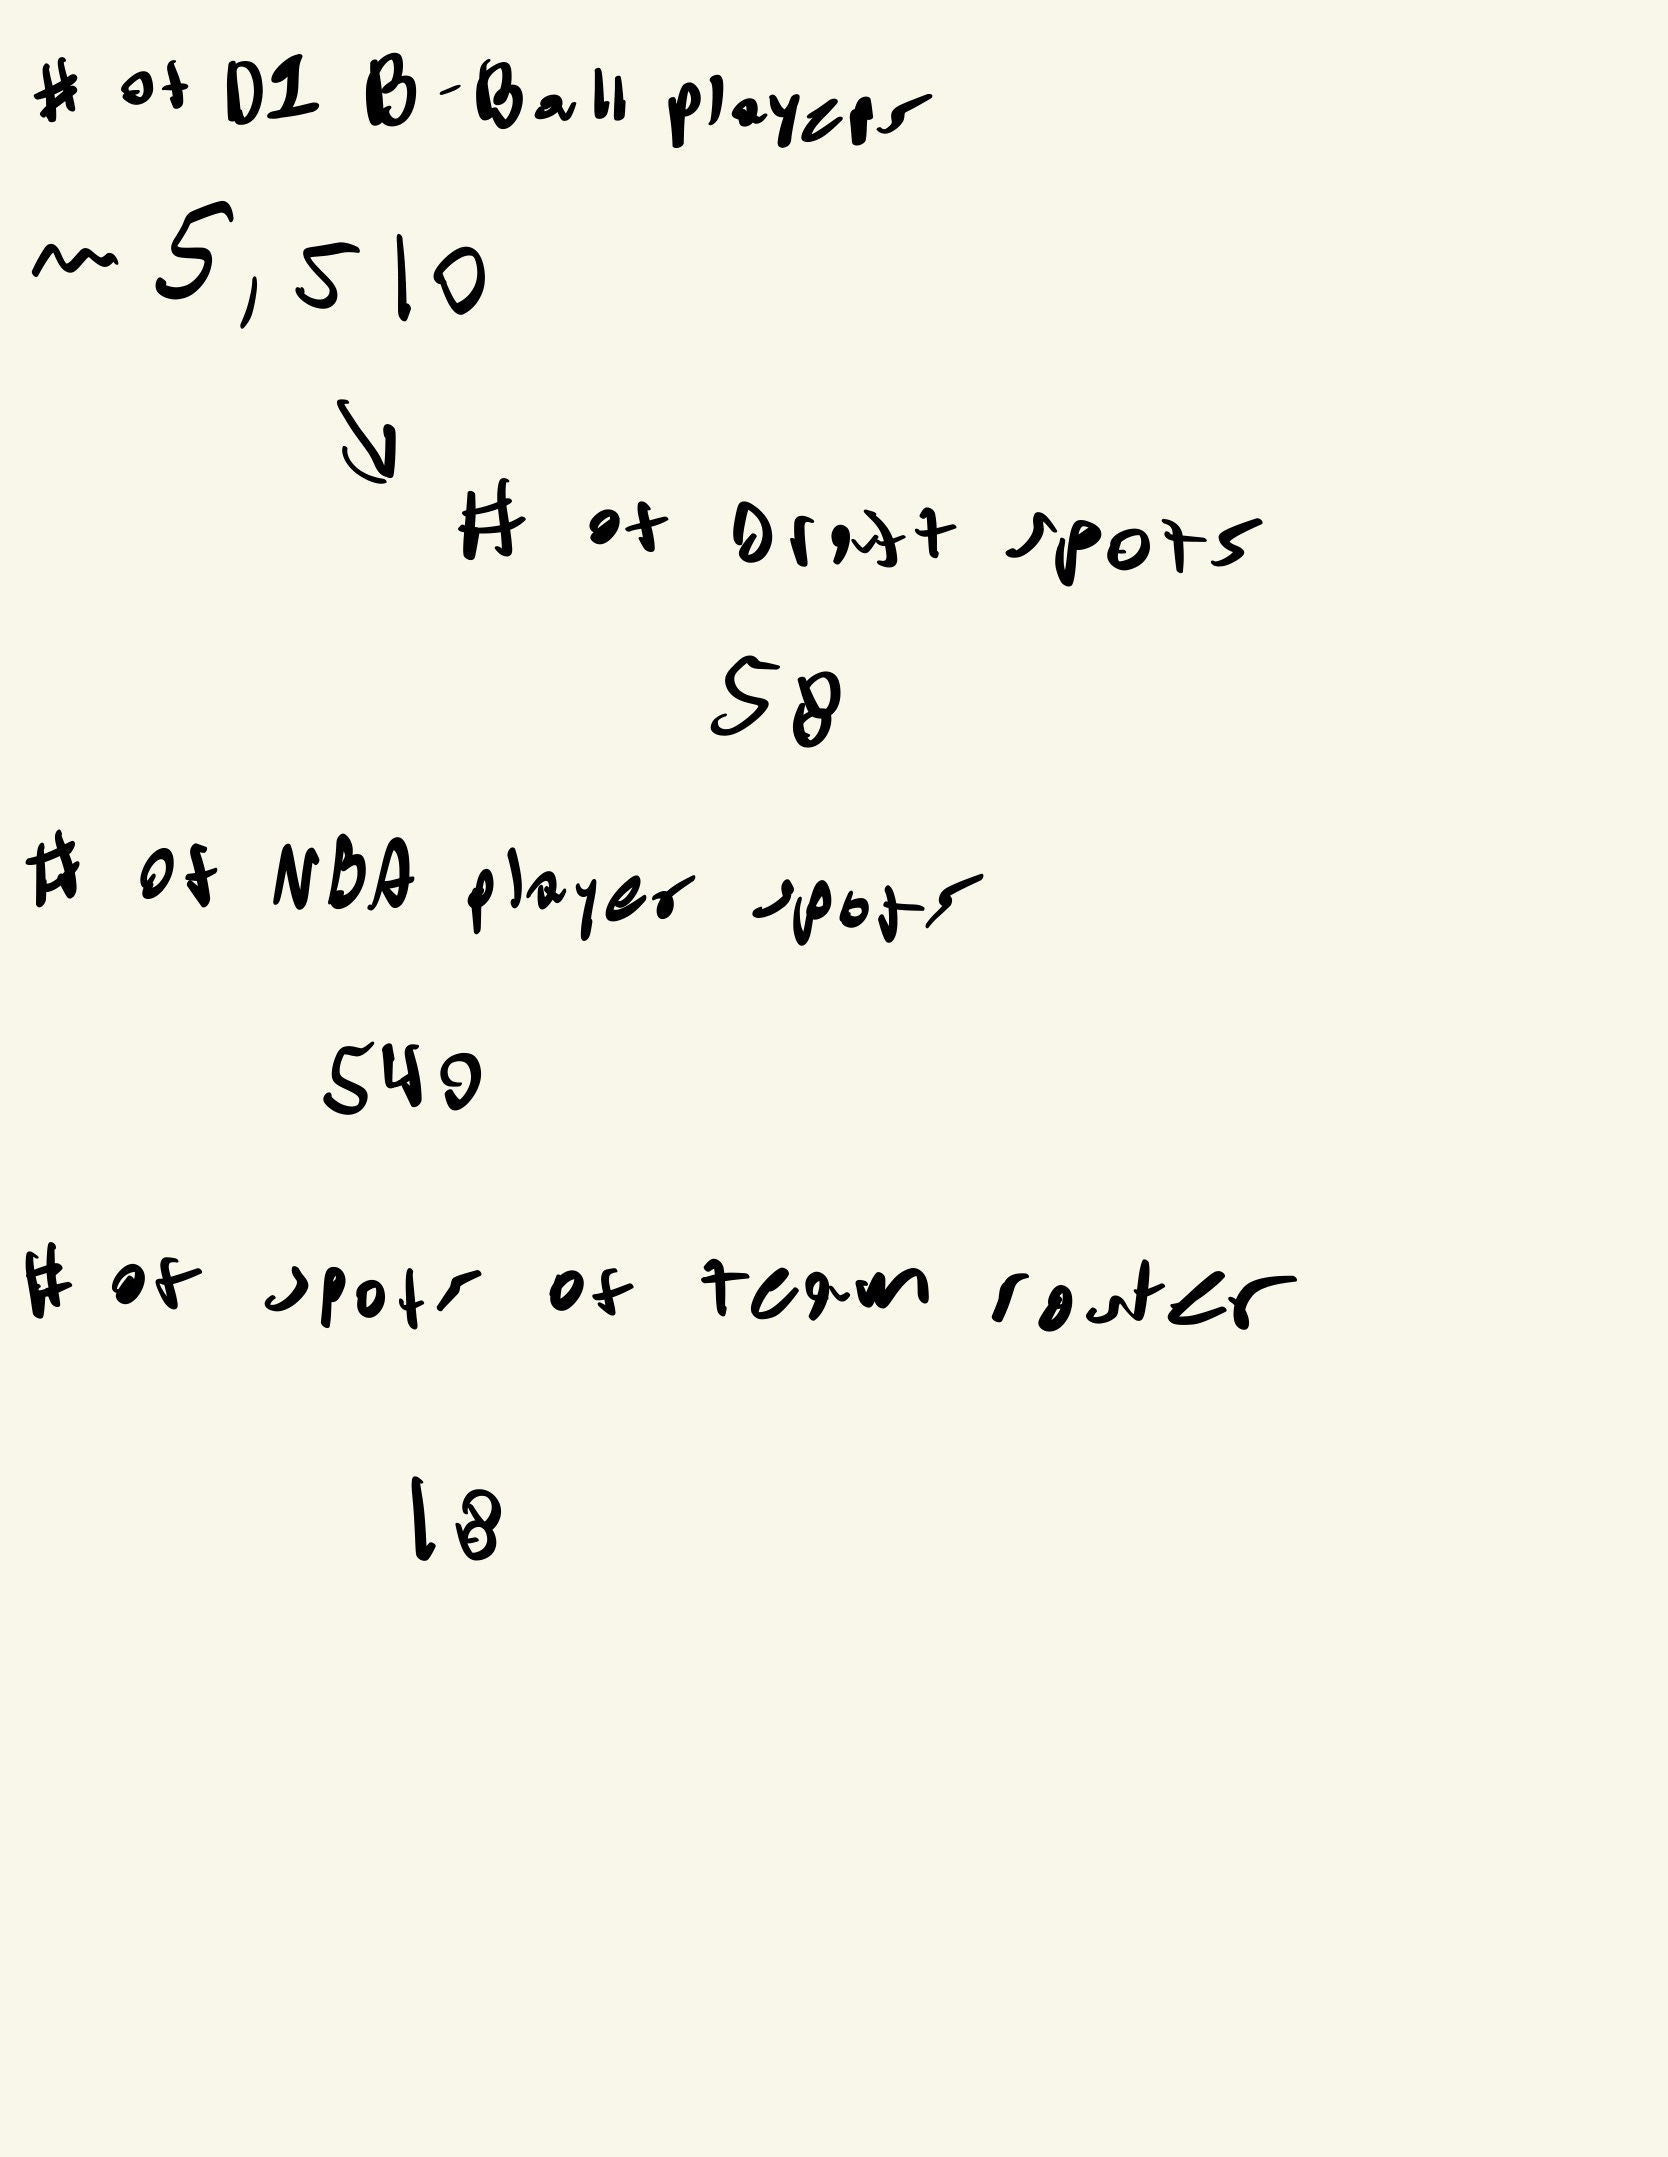 # of D1 B-Ball players
~ 5,510
# of Draft spots
58
# of NBA player spots
540
# of spots of team roster
18